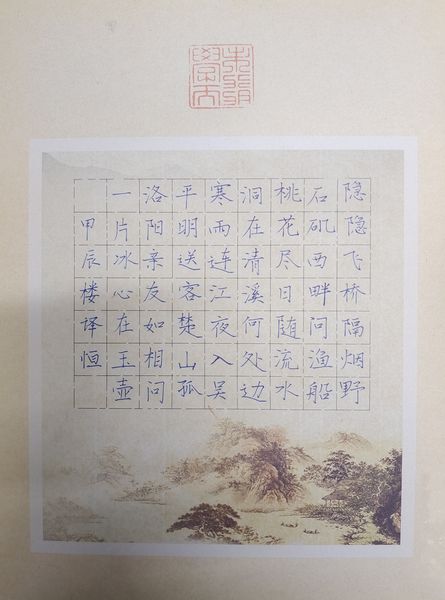 隐隐飞桥隔烟野
石矶西畔问渔船
桃花尽日随流水
洞在清溪何处边
寒雨连江夜入吴
平明送客楚山孤
洛阳亲友如相问
一片冰心在玉壶
甲辰楼译恒